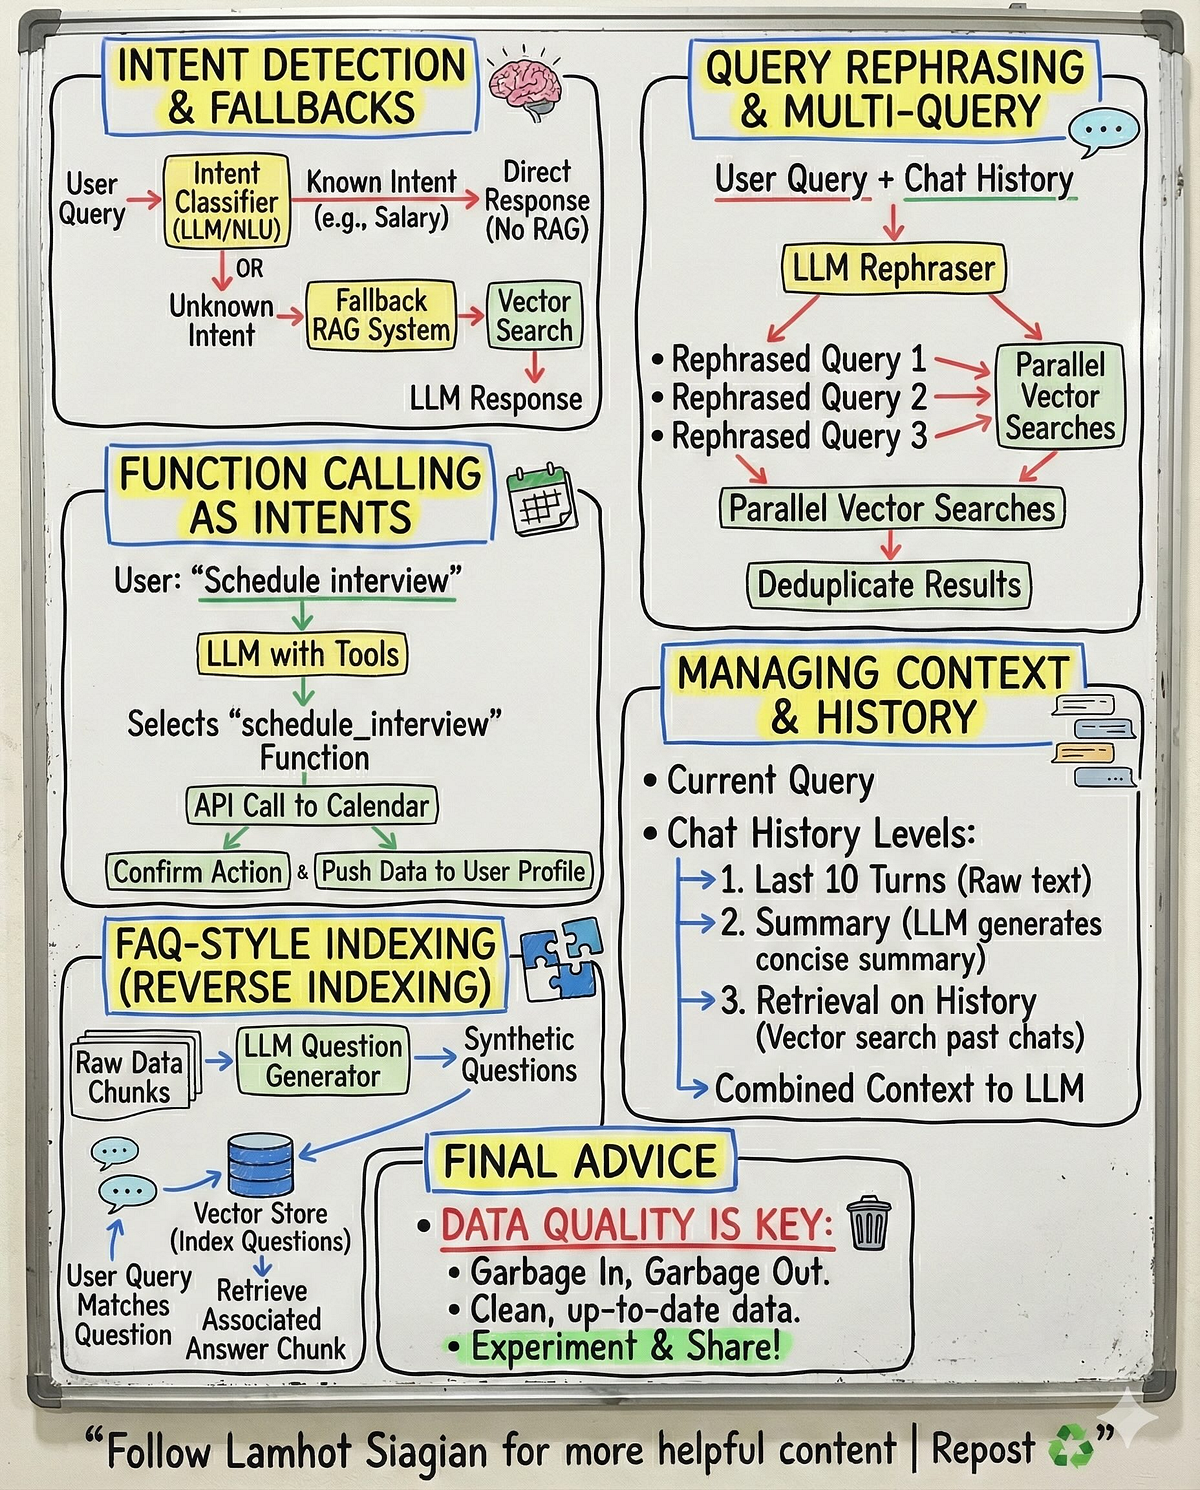 INTENT DETECTION
& FALLBACKS
User
Query
Intent
Classifier
(LLM/NLU)
Known Intent
(e.g., Salary)
Direct
Response
(No RAG)
OR
Unknown
Intent
Fallback
RAG System
Vector
Search
LLM Response
QUERY REPHRASING
& MULTI-QUERY
User Query + Chat History
LLM Rephraser
• Rephrased Query 1
• Rephrased Query 2
• Rephrased Query 3
Parallel
Vector
Searches
Parallel Vector Searches
Deduplicate Results
FUNCTION CALLING
AS INTENTS
User: “Schedule interview”
LLM with Tools
Selects “schedule_interview”
Function
API Call to Calendar
Confirm Action & Push Data to User Profile
MANAGING CONTEXT
& HISTORY
• Current Query
• Chat History Levels:
1. Last 10 Turns (Raw text)
2. Summary (LLM generates
concise summary)
3. Retrieval on History
(Vector search past chats)
Combined Context to LLM
FAQ-STYLE INDEXING
(REVERSE INDEXING)
Raw Data
Chunks
LLM Question
Generator
Synthetic
Questions
Vector Store
(Index Questions)
User Query
Matches
Question
Retrieve
Associated
Answer Chunk
FINAL ADVICE
• DATA QUALITY IS KEY:
• Garbage In, Garbage Out.
• Clean, up-to-date data.
• Experiment & Share!
“Follow Lamhot Siagian for more helpful content | Repost ♻”